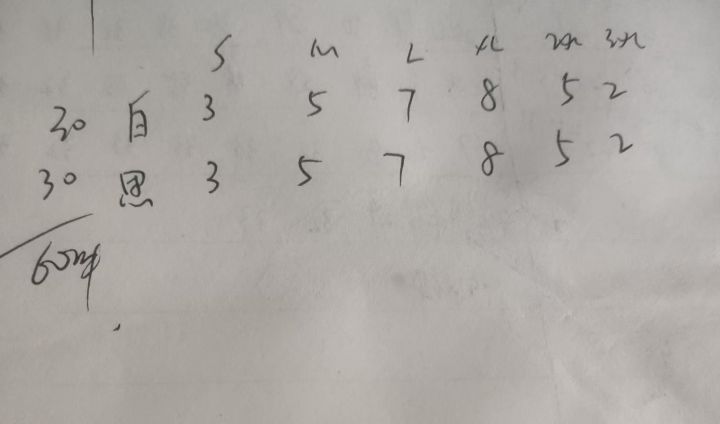 S M L XL 2XL 3XL
30 白 3 5 7 8 5 2
30 黑 3 5 7 8 5 2
60件